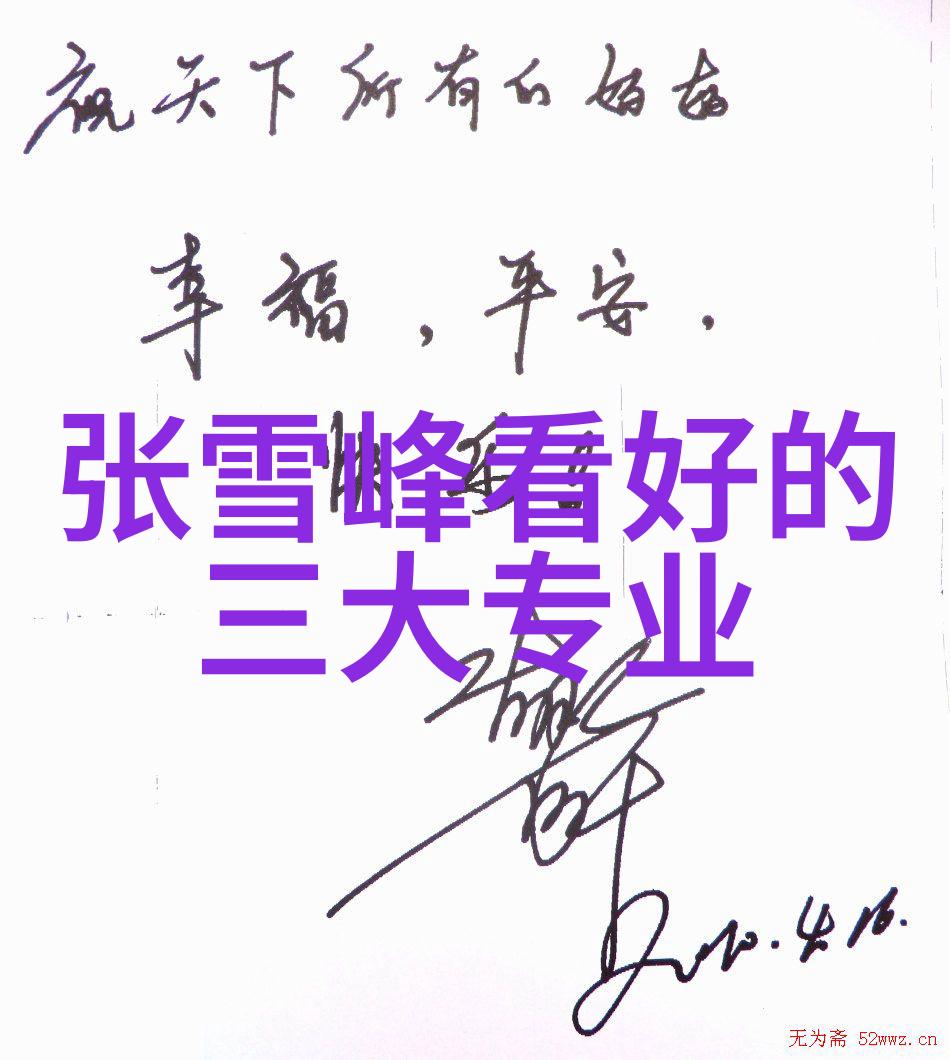 祝天下所有的妈妈
幸福，平安，
快乐！
张雪峰看好的
三大专业
2010.4.16.
无为斋 52wwz.cn